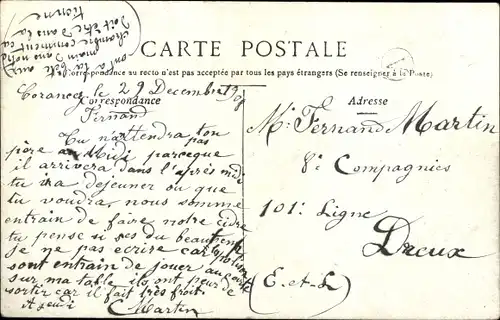 CARTE POSTALE
La Correspondance au recto n'est pas acceptée par tous les pays étrangers (Se renseigner à la Poste)
le 29 Decembre
Correspondance
Adresse
Fernand
Tu n'attendra ton
pas
père a Midi parceque
il arrivera dans l'après midi
tu ira dejeuner ou que
tu voudra, nous somme
entrain de faire notre cidre
tu pense si ses du beau
je ne pas ecrire car
sont entrain de jouer au
sur ma table ils ont peur de
sortir car il fait très froid.
A jeudi
Martin
Mr Fernand Martin
8e Compagnies
101e Ligne
Dreux
(E-et-L)
chambre comment